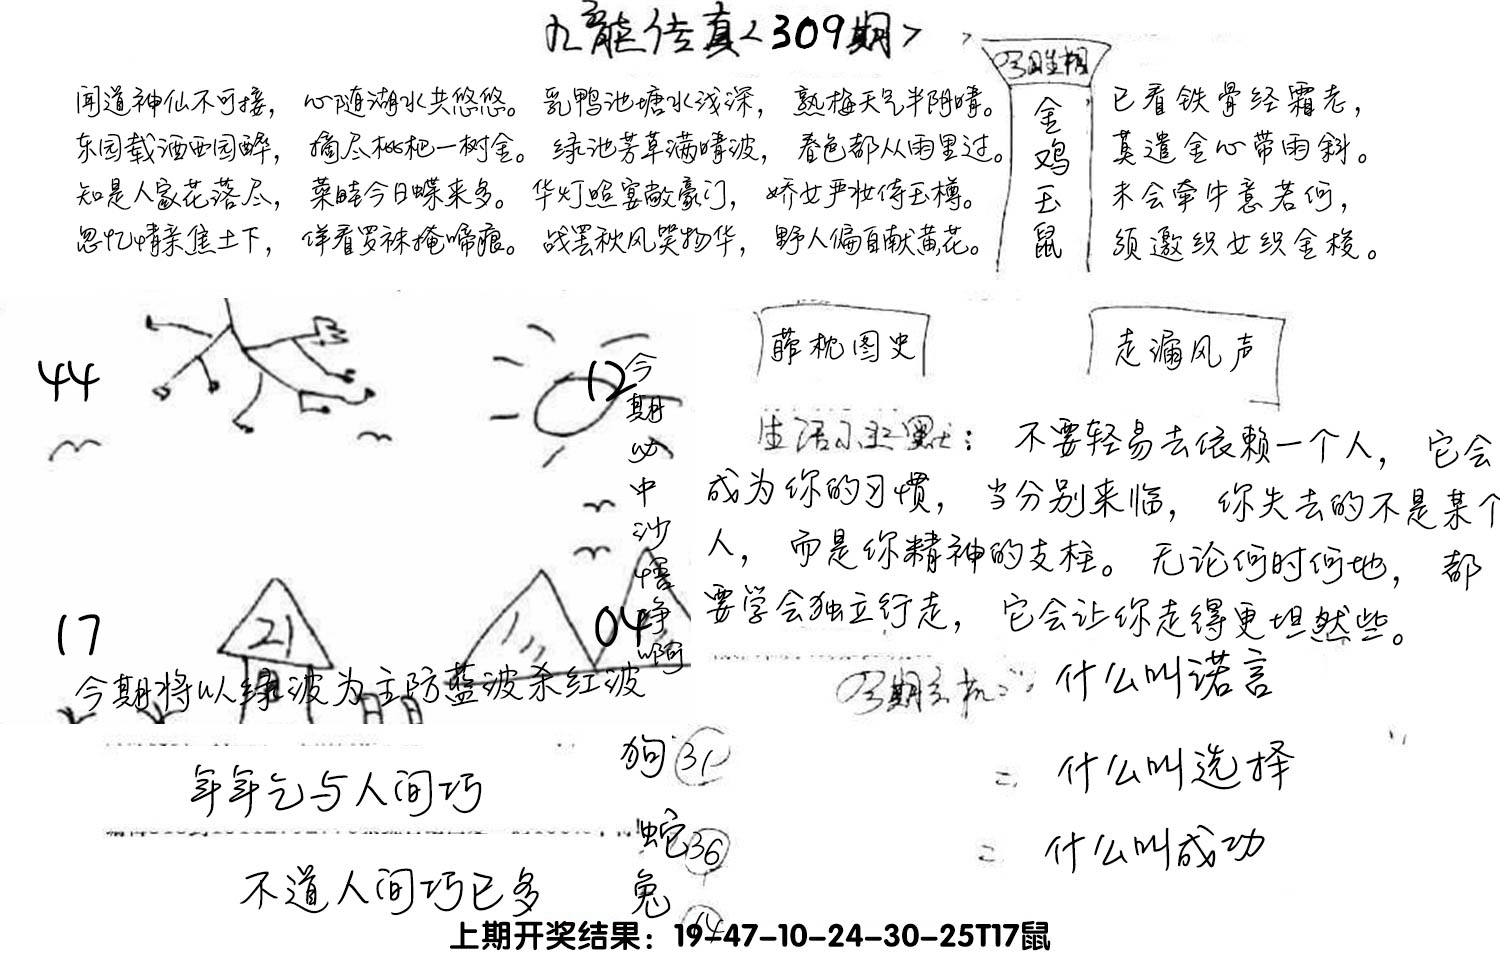 九龙传真<309期>
闻道神仙不可接，心随湖水共悠悠。乳鸭池塘水浅深，熟梅天气半阴晴。
东园载酒西园醉，摘尽枇杷一树金。绿池芳草满晴波，春色都从雨里过。
知是人家花落尽，菜畦今日蝶来多。华灯照宴敞豪门，娇女严妆侍玉樽。
忽忆情亲焦土下，佯看罗袜掩啼痕。战罢秋风笑物华，野人偏自献黄花。
金鸡玉鼠
已看铁骨经霜老，
莫遣金心带雨斜。
未会牵牛意若何，
须邀织女织金梭。
44
12
17
21
04
今期必中沙悭峥啊
今期将以绿波为主防蓝波杀红波
菲枕图史
走漏风声
生活小幽默：不要轻易去依赖一个人，它会
成为你的习惯，当分别来临，你失去的不是某个
人，而是你精神的支柱。无论何时何地，都
要学会独立行走，它会让你走得更坦然些。
今期玄机：什么叫诺言
什么叫选择
什么叫成功
年年乞与人间巧
不道人间巧已多
狗 31
蛇 36
兔
上期开奖结果：19-47-10-24-30-25T17鼠